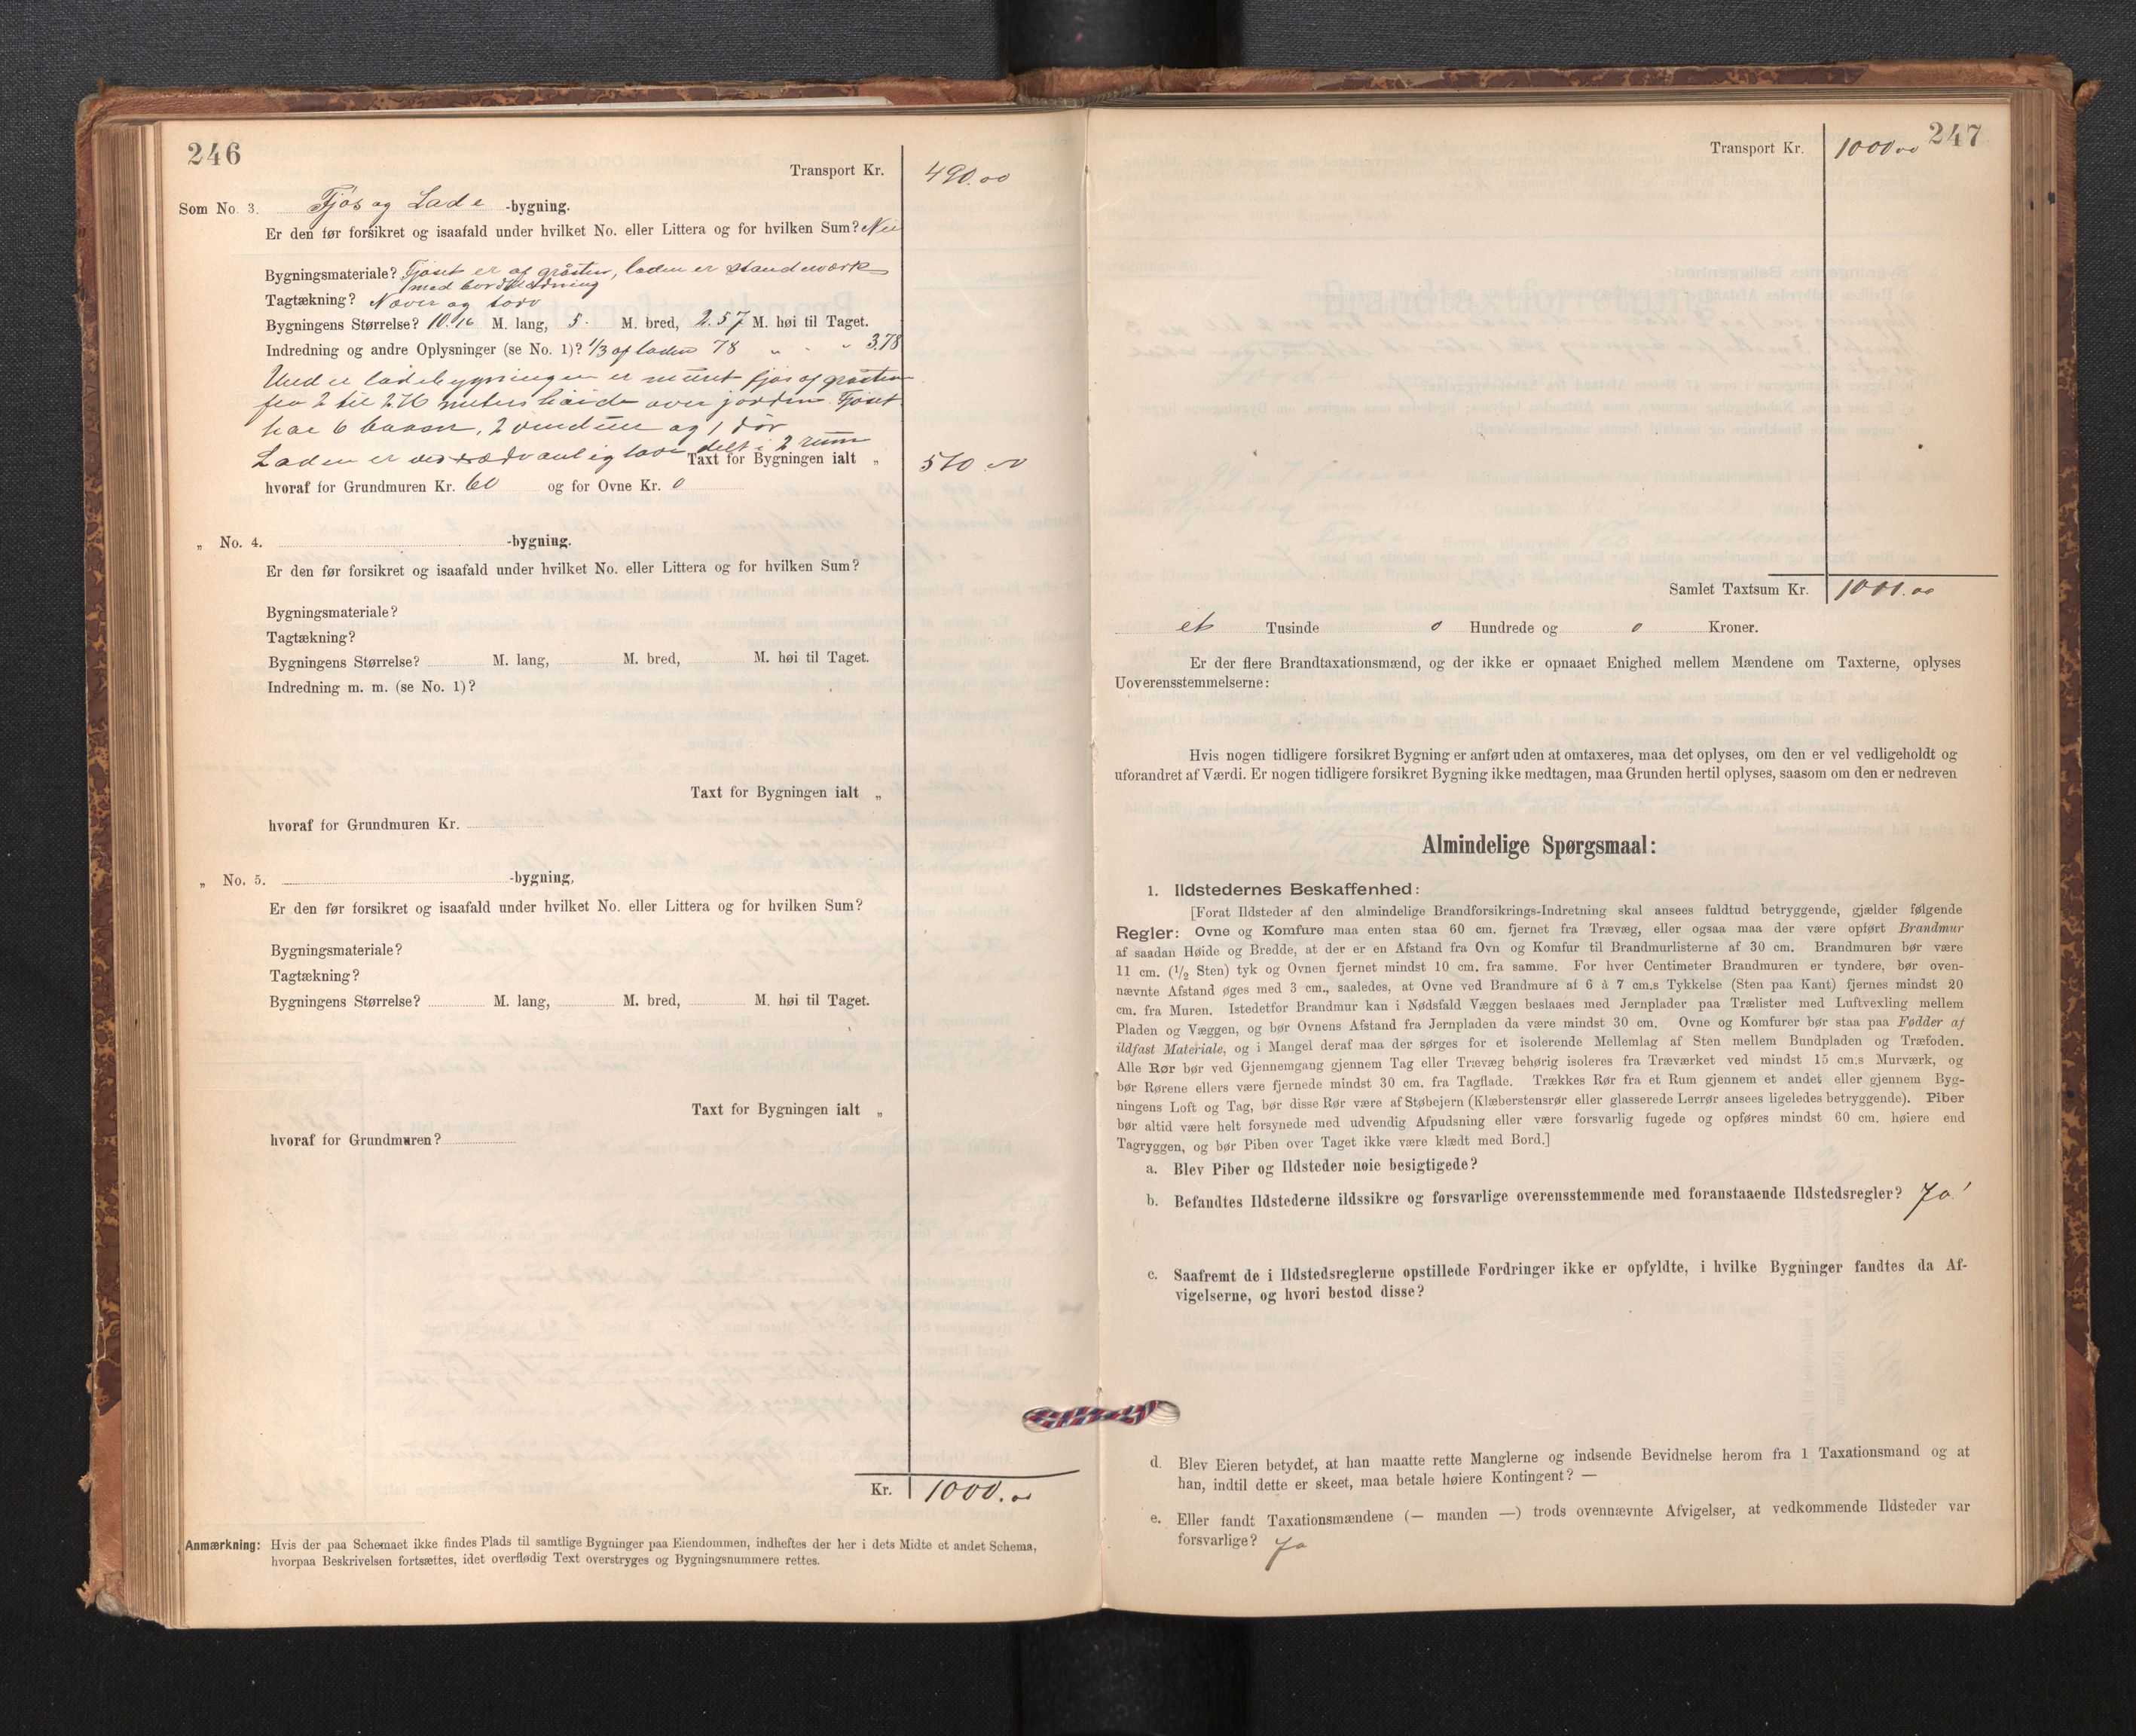 246
Transport Kr. 490.00
Som No. 3. Fjøs og Lade -bygning.
Er den før forsikret og isaafald under hvilket No. eller Littera og for hvilken Sum? Nei
Bygningsmateriale? Fjøset er af gråsten, laden er standværk
med bordklædning
Tagtækning? Næver og torv
Bygningens Størrelse? 10.16 M. lang, 5. M. bred, 2.57 M. høi til Taget.
Indredning og andre Oplysninger (se No. 1)? 1/3 af laden 78 " " " 3.78
Under ladebygningen er muret fjøs af gråsten
fra 2 til 2.76 meters høide over jorden. Fjøset
har 6 baaser, 2 vinduer og 1 dør
Laden er ved delt i 2 rum
Taxt for Bygningen ialt „ 510.00
hvoraf for Grundmuren Kr. 60 og for Ovne Kr. 0
„ No. 4. -bygning.
Er den før forsikret og isaafald under hvilket No. eller Littera og for hvilken Sum?
Bygningsmateriale?
Tagtækning?
Bygningens Størrelse? M. lang, M. bred, M. høi til Taget.
Indredning m. m. (se No. 1)?
Taxt for Bygningen ialt „
hvoraf for Grundmuren Kr.
„ No. 5. -bygning,
Er den før forsikret og isaafald under hvilket No. eller Littera og for hvilken Sum?
Bygningsmateriale?
Tagtækning?
Bygningens Størrelse? M. lang, M. bred, M. høi til Taget.
Taxt for Bygningen ialt „
hvoraf for Grundmuren?
Kr. 1000.00
Anmærkning: Hvis der paa Schemaet ikke findes Plads til samtlige Bygninger paa Eiendommen, indheftes der her i dets Midte et andet Schema,
hvorpaa Beskrivelsen fortsættes, idet overflødig Text overstryges og Bygningsnummere rettes.
247
Transport Kr. 1000.00
Samlet Taxtsum Kr. 1000.00
et Tusinde 0 Hundrede og 0 Kroner.
Er der flere Brandtaxationsmænd, og der ikke er opnaaet Enighed mellem Mændene om Taxterne, oplyses
Uoverensstemmelserne:
Hvis nogen tidligere forsikret Bygning er anført uden at omtaxeres, maa det oplyses, om den er vel vedligeholdt og
uforandret af Værdi. Er nogen tidligere forsikret Bygning ikke medtagen, maa Grunden hertil oplyses, saasom om den er nedreven
Almindelige Spørgsmaal:
1. Ildstedernes Beskaffenhed:
[Forat Ildsteder af den almindelige Brandforsikrings-Indretning skal ansees fuldtud betryggende, gjælder følgende
Regler: Ovne og Komfure maa enten staa 60 cm. fjernet fra Trævæg, eller ogsaa maa der være opført Brandmur
af saadan Høide og Bredde, at der er en Afstand fra Ovn og Komfur til Brandmurlisterne af 30 cm. Brandmuren bør være
11 cm. (1/2 Sten) tyk og Ovnen fjernet mindst 10 cm. fra samme. For hver Centimeter Brandmuren er tyndere, bør oven-
nævnte Afstand øges med 3 cm., saaledes, at Ovne ved Brandmure af 6 à 7 cm.s Tykkelse (Sten paa Kant) fjernes mindst 20
cm. fra Muren. Istedetfor Brandmur kan i Nødsfald Væggen beslaaes med Jernplader paa Trælister med Luftvexling mellem
Pladen og Væggen, og bør Ovnens Afstand fra Jernpladen da være mindst 30 cm. Ovne og Komfurer bør staa paa Fødder af
ildfast Materiale, og i Mangel deraf maa der sørges for et isolerende Mellemlag af Sten mellem Bundpladen og Træfoden.
Alle Rør bør ved Gjennemgang gjennem Tag eller Trævæg behørig isoleres fra Træværket ved mindst 15 cm.s Murværk, og
bør Rørene ellers være fjernede mindst 30 cm. fra Tagflade. Trækkes Rør fra et Rum gjennem et andet eller gjennem Byg-
ningens Loft og Tag, bør disse Rør være af Støbejern (Klæberstensrør eller glasserede Lerrør ansees ligeledes betryggende). Piber
bør altid være helt forsynede med udvendig Afpudsning eller være forsvarlig fugede og opføres mindst 60 cm. høiere end
Tagryggen, og bør Piben over Taget ikke være klædt med Bord.]
a. Blev Piber og Ildsteder nøie besigtigede?
b. Befandtes Ildstederne ildssikre og forsvarlige overensstemmende med foranstaaende Ildstedsregler? Ja!
c. Saafremt de i Ildstedsreglerne opstillede Fordringer ikke er opfyldte, i hvilke Bygninger fandtes da Af-
vigelserne, og hvori bestod disse?
d. Blev Eieren betydet, at han maatte rette Manglerne og indsende Bevidnelse herom fra 1 Taxationsmand og at
han, indtil dette er skeet, maa betale høiere Kontingent? —
e. Eller fandt Taxationsmændene (— manden —) trods ovennævnte Afvigelser, at vedkommende Ildsteder var
forsvarlige? Ja